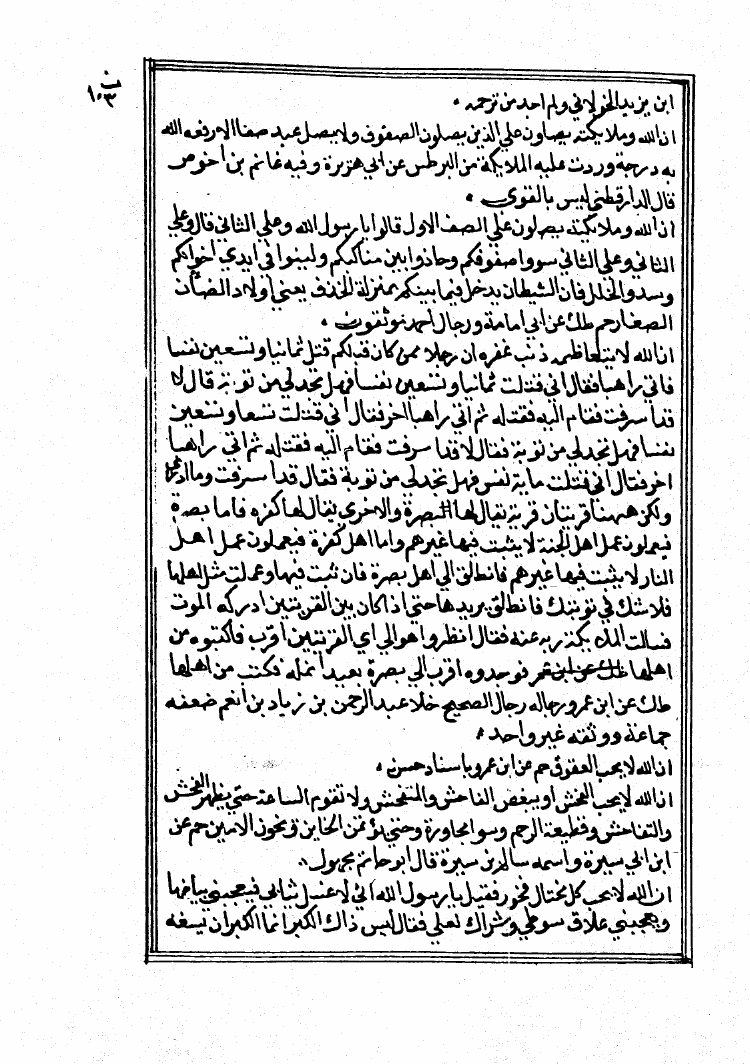 ث
١٠٣
ابن يزيد الخولاني ولم اجد من ترجمه .
ان الله وملايكته يصلون علي الذين يصلون الصفوف ولا يصل عبد صفا الا رفعه الله
به درجة وردت عليه الملايكة من البر طس عن ابي هريرة وفيه غانم بن احوص
قال الدارقطني ليس بالقوي .
ان الله وملايكته يصلون علي الصف الاول قالوا يا رسول الله وعلي الثاني قال وعلي
الثاني وعلي الثاني سووا صفوفكم وحاذوا بين مناكبكم ولينوا في ايدي اخوانكم
وسدوا الخلل فان الشيطان يدخل فيما بينكم بمنزلة الخذف يعني اولاد الضان
الصغار حم طك عن ابي امامة ورجال احمد موثقون .
ان الله لا يتعاظمه ذنب غفره ان رجلا ممن كان قبلكم قتل ثمانيا وتسعين نفسا
فاتي راهبا فقال اني قتلت ثمانيا وتسعين نفسا فهل تجد لي من توبة قال لا
قد اسرفت فقام اليه فقتله ثم اتي راهبا اخر فقال اني قتلت تسعا وتسعين
نفسا فهل تجد لي من توبة فقال لا قد اسرفت فقام اليه فقتله ثم اتي راهبا
اخر فقال اني قتلت ماية نفس فهل تجد لي من توبة فقال قد اسرفت وما ادري
ولكن ههنا قريتان قرية يقال لها البصرة والاخري يقال لها كفره فاما بصرة
فيعملون عمل اهل الجنة لا يثبت فيها غيرهم واما اهل كفرة فيعملون عمل اهل
النار لا يثبت فيها غيرهم فانطلق الي اهل بصرة فان ثبت فيها وعملت مثل اهلها
فلا شك في توبتك فانطلق يريدها حتي اذا كان بين القريتين ادركه الموت
فسالت الملايكة ربه عنه فقال انظروا هو الي اي القريتين اقرب فاكتبوه من
اهلها طك عن ابن عمر فوجدوه اقرب الي بصرة بقيد انمله فكتب من اهلها
طك عن ابن عمرو رجاله رجال الصحيح خلا عبد الرحمن بن زياد بن انعم ضعفه
جماعة ووثقه غير واحد .
ان الله لا يحب العقوق حم عن ابن عمرو باسناد حسن .
ان الله لا يحب الفحش او يبغض الفاحش والمتفحش ولا تقوم الساعة حتي يظهر الفحش
والتفاحش وقطيعة الرحم وسو المجاورة وحتي يؤتمن الخاين ويخون الامين حم عن
ابن ابي سبرة واسمه سالم بن سبرة قال ابو حاتم مجهول .
ان الله لا يحب كل مختال فخور فقيل يا رسول الله اني لاغسل ثيابي فيعجبني بياضها
ويعجبني علاق سوطي وشراك نعلي فقال ليس ذاك الكبر انما الكبر ان تسفه